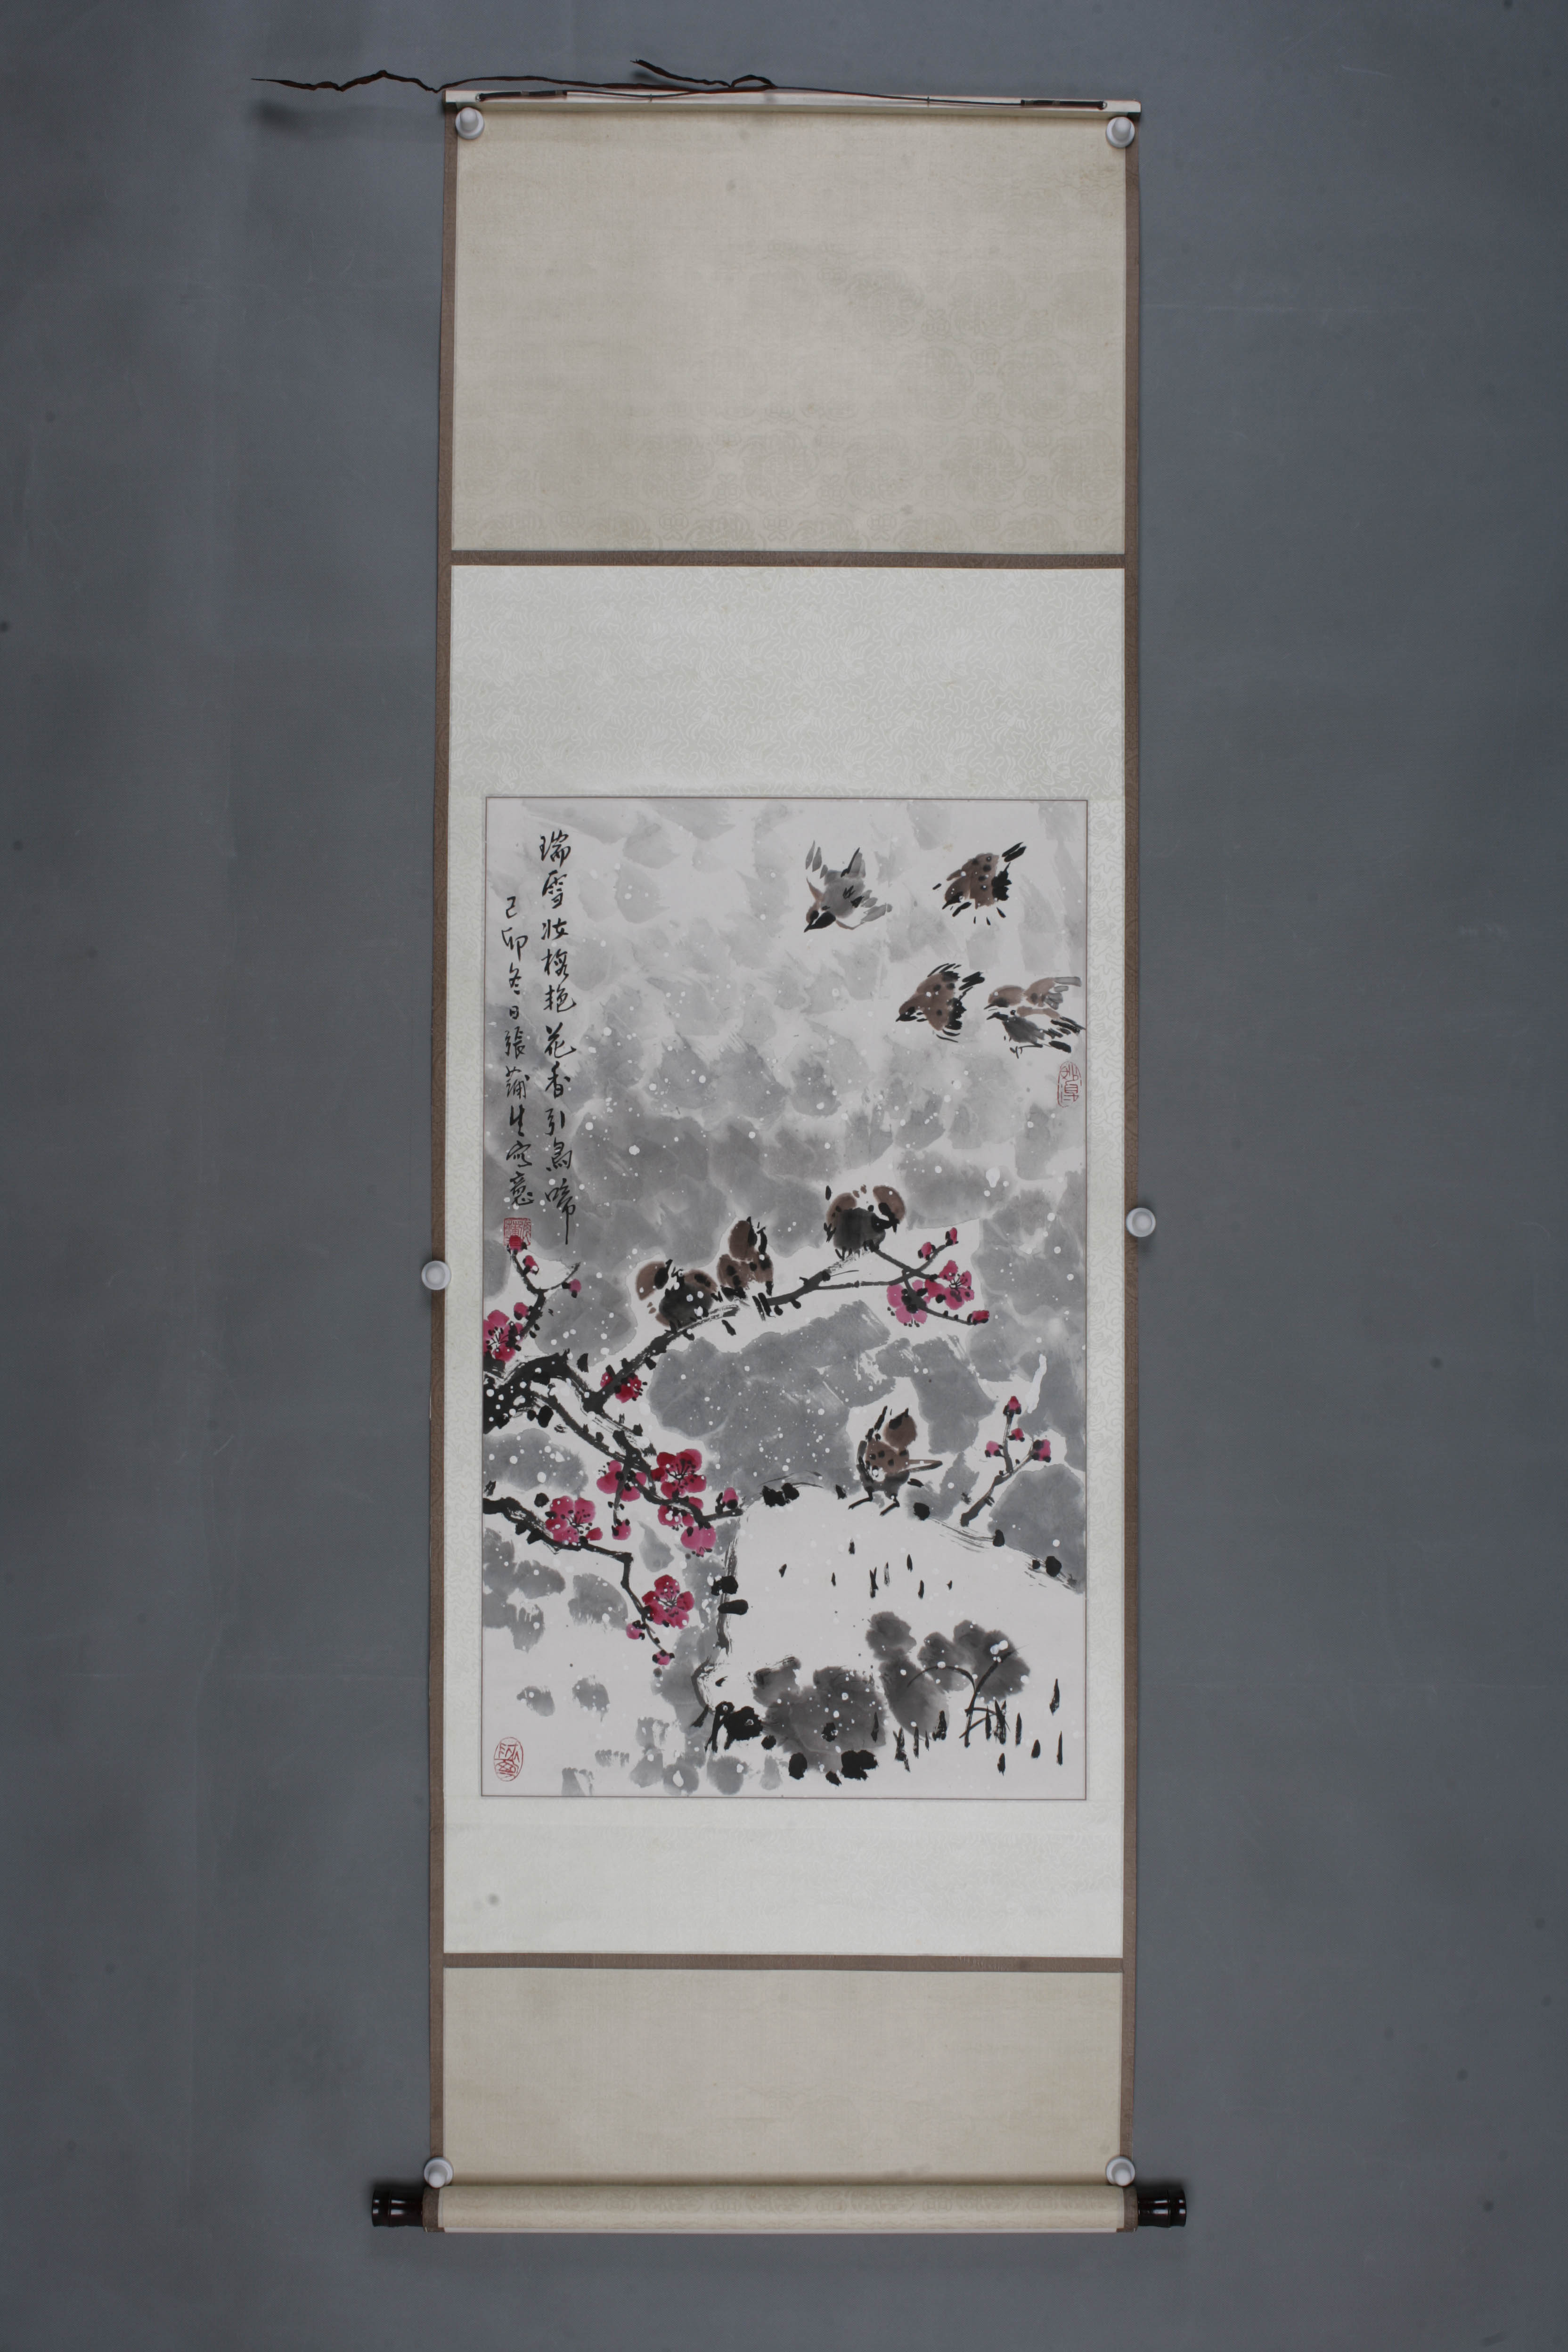 瑞雪妆梅艳花香引鸟啼
己卯冬日張蒲生寫意